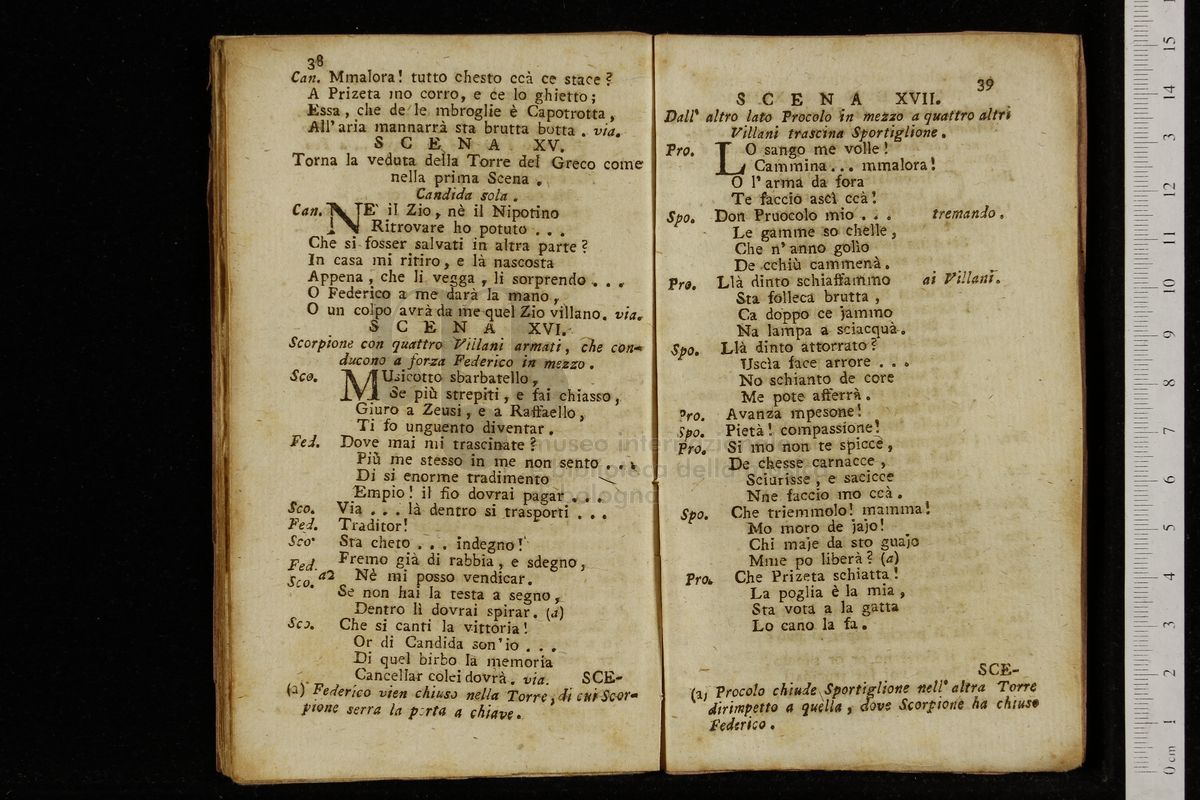 38
Can. Mmalora! tutto chesto ccà ce stace?
A Prizeta mo corro, e ce lo ghietto;
Essa, che de le mbroglie è Capotrotta,
All' aria mannarrà sta brutta botta. via.
SCENA XV.
Torna la veduta della Torre del Greco come
nella prima Scena.
Candida sola.
Can. NE' il Zio, nè il Nipotino
Ritrovare ho potuto . . .
Che si fosser salvati in altra parte?
In casa mi ritiro, e là nascosta
Appena, che li vegga, li sorprendo . . .
O Federico a me darà la mano,
O un colpo avrà da me quel Zio villano. via.
SCENA XVI.
Scorpione con quattro Villani armati, che con-
ducono a forza Federico in mezzo.
Sco. MUsicotto sbarbatello,
Se più strepiti, e fai chiasso,
Giuro a Zeusi, e a Raffaello,
Ti fo unguento diventar.
Fed. Dove mai mi trascinate?
Più me stesso in me non sento . . .
Di si enorme tradimento
Empio! il fio dovrai pagar . . .
Sco. Via . . . là dentro si trasporti . . .
Fed. Traditor!
Sco. Sta cheto . . . indegno!
Fed. Fremo già di rabbia, e sdegno,
a2 Nè mi posso vendicar.
Sco. Se non hai la testa a segno,
Dentro lì dovrai spirar. (a)
Sco. Che si canti la vittoria!
Or di Candida son' io . . .
Di quel birbo la memoria
Cancellar colei dovrà. via.
SCE-
(a) Federico vien chiuso nella Torre, di cui Scor-
pione serra la porta a chiave.
39
SCENA XVII.
Dall' altro lato Procolo in mezzo a quattro altri
Villani trascina Sportiglione.
Pro. LO sango me volle!
Cammina . . . mmalora!
O l' arma da fora
Te faccio ascì ccà!
Spo. Don Pruocolo mio . . . tremando.
Le gamme so chelle,
Che n' anno golìo
De cchiù cammenà.
Pro. Llà dinto schiaffammo ai Villani.
Sta folleca brutta,
Ca doppo ce jammo
Na lampa a sciacquà.
Spo. Llà dinto attorrato?
Uscìa face arrore . . .
No schianto de core
Me pote afferrà.
Pro. Avanza mpesone!
Spo. Pietà! compassione!
Pro. Si mo non te spicce,
De chesse carnacce,
Sciurisse, e sacicce
Nne faccio mo ccà.
Spo. Che triemmolo! mamma!
Mo moro de jajo!
Chi maje da sto guajo
Mme po liberà? (a)
Pro. Che Prizeta schiatta!
La poglia è la mia,
Sta vota a la gatta
Lo cano la fa.
SCE-
(a) Procolo chiude Sportiglione nell' altra Torre
dirimpetto a quella, dove Scorpione ha chiuso
Federico.
museo internazionale
e biblioteca della musica
bologna
0 cm 1 2 3 4 5 6 7 8 9 10 11 12 13 14 15